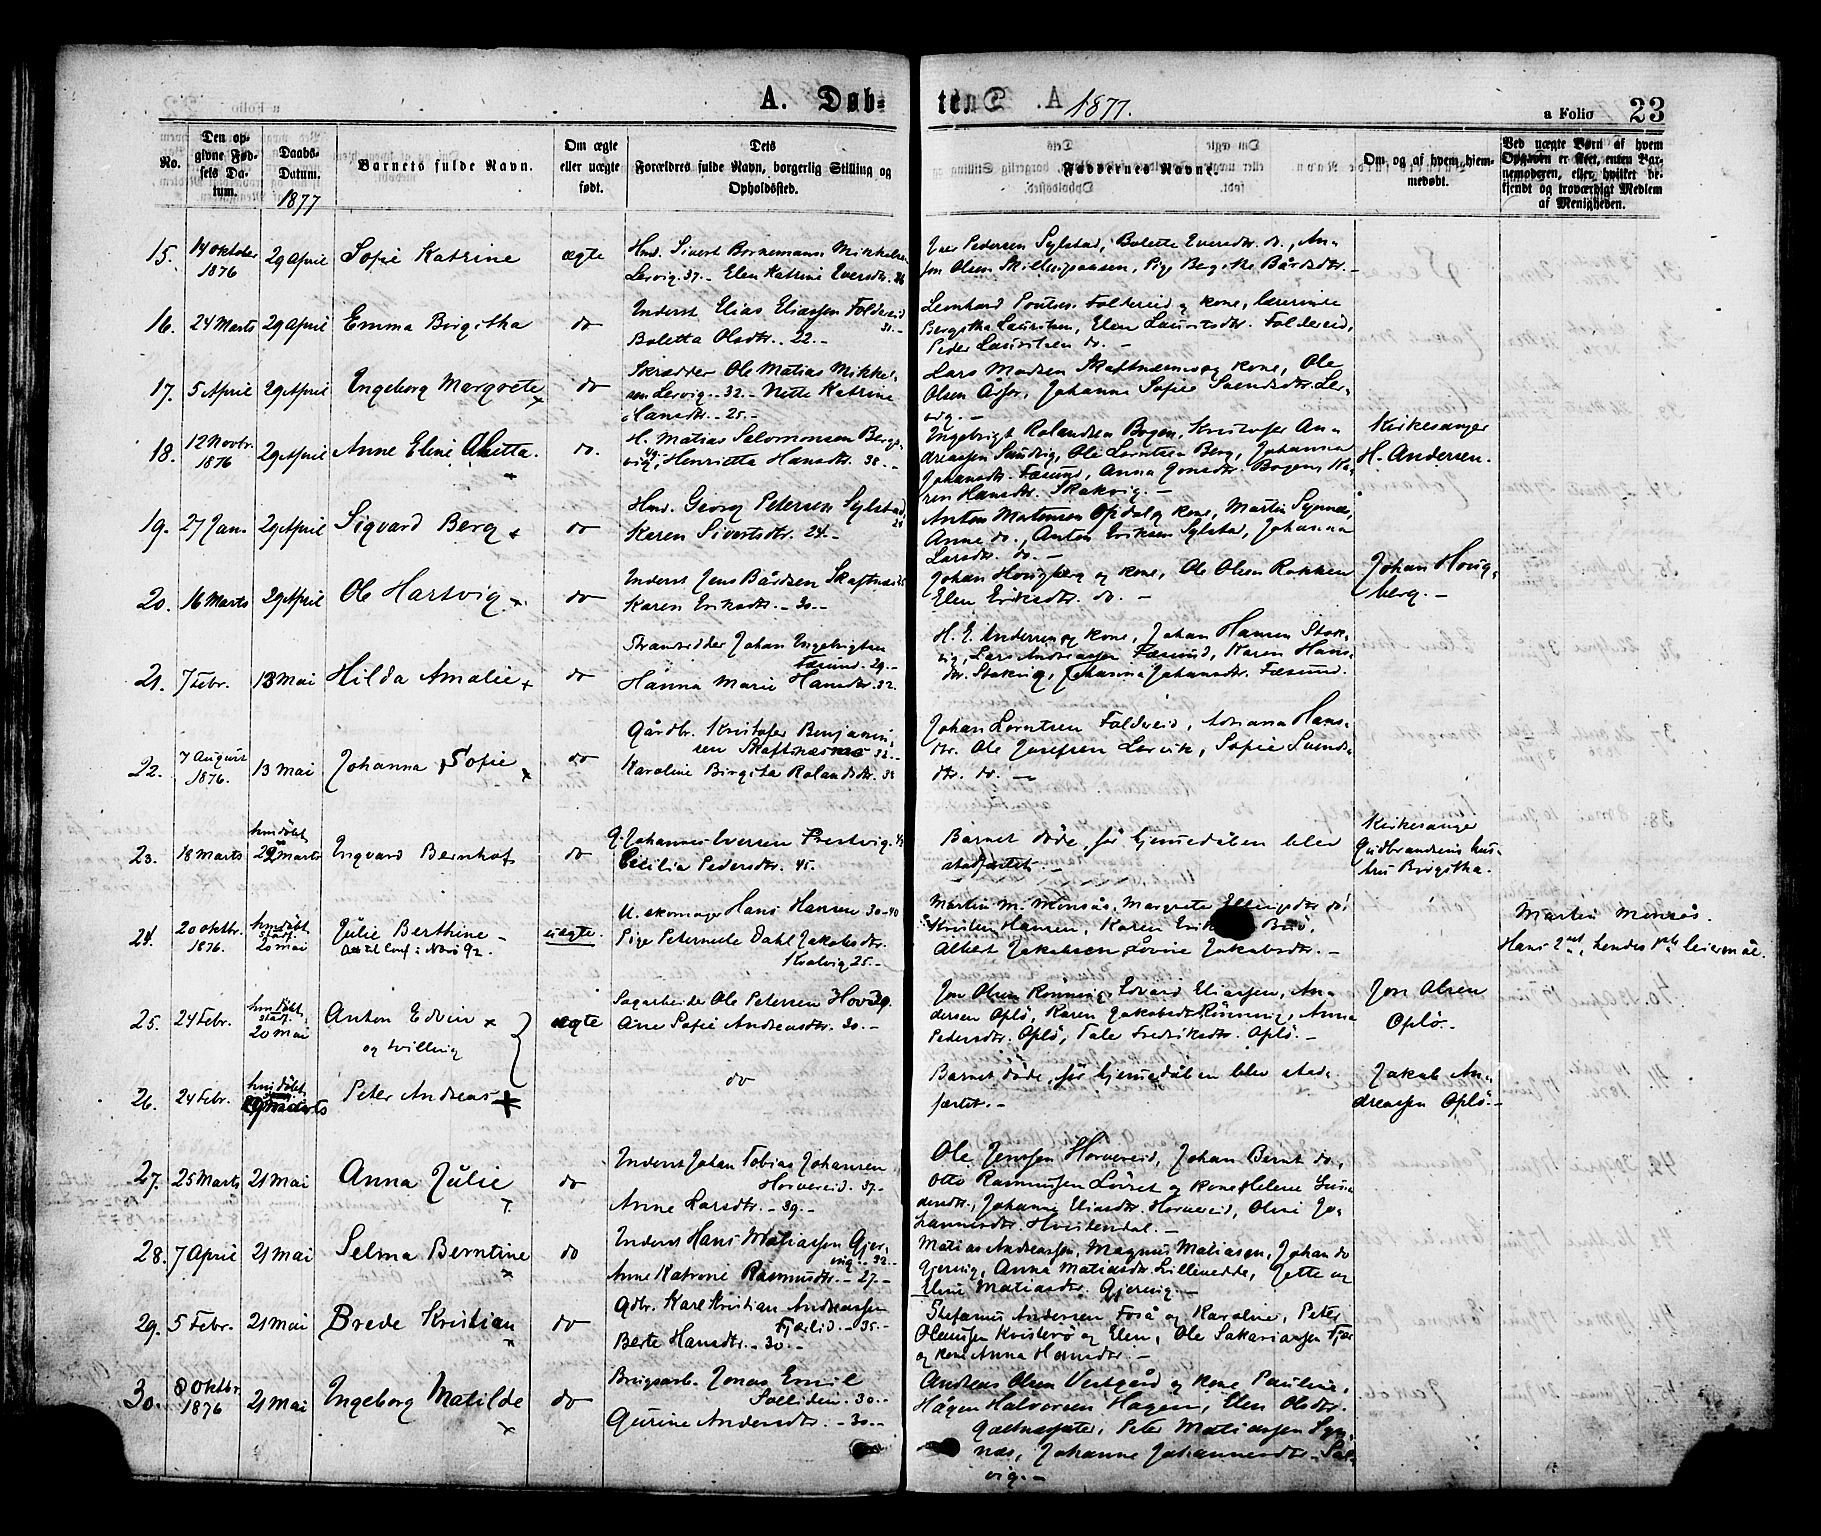 A. Døb-
te. 1877.
a Folio 23
No.
Den op-
givne Fød-
sels Da-
tum.
Daabs-
Datum.
1877
Barnets fulde Navn.
Om ægte
eller uægte
født.
Dets
Forældres fulde Navn, borgerlig Stilling og
Opholdssted.
Faddernes Navne.
Om og af hvem hjem-
medøbt.
Ved uægte Børn af hvem
Opgaven er skeet, enten Bar-
nemoderen, eller hvilket be-
kjendt og troværdigt Medlem
af Menigheden.
15. 14 Oktober 1876 29 April Sofie Katrine ægte
Hmd. Sivert Bornemann Mikkelsen
Lervig. 37. – Elen Katrine Iversdtr.
Iver Pedersen Sylstad, Bolette Iversdtr. do.,
Olsen Pige Bergithe Bårdsdtr. –
16. 24 Marts 29 April Emma Birgitha do
Inderst Elias Eliassen Foldereid
31. –
Boletta Olsdtr. 22. –
Leonhard Foldereid og kone, lærerinde
Bergitha Lauritsen, Elen Lauritsdtr. Foldereid,
Peder Lauritsen do. –
17. 5 April 29 April Ingeborg Margrete do
Skrædder Ole Matias Mikkel-
sen Lervig. – 32. – Nette Katrine
Hansdtr. – 25. –
Lars Madsen Skaftnæs og kone, Ole
Olsen Johanna Sofie Svendsdtr. Ler-
vig. –
18. 12 Novbr. 1876 29 April Anne Eline Aletta. do.
H. Matias Salomonsen Bergs-
vig, 49. Henrietta Hansdtr. 38. –
Ingebrigt Rolandsen Bogen, Kristofer An-
dreassen Sundvig, Ole Lorntsen Berg, Johanna
Johansdtr. Fæsund, Anna Jonsdtr. Bogen, Ka-
ren Hansdtr. Stokvig. –
Kirkesanger
H. Andersen.
19. 27 Jan. 29 April Sigvard Berg do
Hmd. Georg Petersen Sylstad,
Karen Sivertsdtr. 24. –
Anton Mortensen Opdal og kone, Martin
Anne do., Anton Eriksen Sylstad, Johanna
Larsdtr. do. –
20. 16 Marts 29 April Ole Hartvig do
Inderst Jens Bårdsen Skaftnæs
Karen Eriksdtr. – 30. –
Johan Hougberg og kone, Ole Olsen Rokken
Elen Eriksdtr. do. –
Johan Houg-
berg. –
21. 7 Febr. 13 Mai Hilda Amalie do
Strandsidder Johan Ingebrigtsen
Fæsund. 29. –
Hanna Marie Hansdtr. 32.
H. E. Andersen og kone, Johan Hansen Stok-
vig, Lars Andreassen Fæsund, Karen Hans-
dtr. Stokvig, Johanna Johansdtr. Fæsund.
22. 7 August 1876. 13 Mai Johanna Sofie do
Gårdbr. Kristofer Benjamin-
sen Skaftnæs 32. –
Karoline Birgita Rolandsdtr.
Johan Lorntsen Foldereid, Adriana Hans-
dtr. Ole Josefsen Lervik, Sofie Svends-
dtr. do. –
23. 18 Marts hjmdøbt 29 Marts Ingvard Bernhof do
G. Johannes Iversen Prestvig.
Cecilia Pedersdtr. 45.
Barnet døde, før hjemmedåben blev
stadfæstet. –
Kirkesanger
Gudbrandsens hus-
tru Birgitha.
24. 20 oktbr. 1876. hjmdøbt stadf. 20 mai Julie Berthine – uægte.
U. skomager Hans Hansen 30–40
Pige Peternelle Dahl Jakobsdtr.
Kvalvig 25. –
Martin M. Monsås, Margrete Ellingsdtr do,
Kristen Hansen, Karen
Albert Jakobsen Lovise Jakobsdtr. –
Martin Monsås.
Hans 2det, hendes 1ste leiermål.
25. 24 Febr. hjmdøbt stadf. 20 mai Anton Edvin ægte
og tvilling
Sagarbeider Ole Petersen
Ane Sofie Andreasdtr. 30. –
Jon Olsen Rönning, Edvard Eliassen, An-
dersen Oplö, Karen Jakobsdtr Rönning, Anna
Pedersdtr. Oplö, Tale Fredriksdtr. Oplö. –
Jon Olsen
Oplö. –
26. 24 Febr. hjmdøbt Peter Andreas
do
Barnet døde, før hjemmedåben blev stad-
fæstet. –
Jakob An-
dreassen Oplö. –
27. 25 Marts 21 Mai Anna Julie do
Inderst Johan Tobias Johansen
Horvereid. 37. –
Anne Larsdtr. – 39. –
Ole Jensen Horvereid, Johan Bernt do,
Otto Rasmussen og kone Helene
Johanna Eliasdtr. Horvereid, Oline Jo-
hannesdtr. Hvistendal. –
28. 7 April 21 Mai Selma Berntine do
Inderst Hans Matiassen Gjer-
vig. – 32. –
Anne Katrine Rasmusdtr. – 27. –
Matias Andreassen, Magnus Matiasen, Johan do
Gjervig, Anna Matiasdtr. Jette og
Eline Matiasdtr. Gjervig. –
29. 5 Febr. 21 Mai Brede Kristian do
Gdbr. Karl Kristian Andreassen
Fjærlid. – 35. –
Berte Hansdtr. – 30. –
Stefanus Andersen Foså og Karoline, Peter
og Elen, Ole Sakariassen
og kone Anna Hansdtr. –
30. 8 Oktbr. 1876 21 Mai Ingeborg Matilde do
Brugsarb. Jonas Emil
Solliden. 30. –
Gurine Andersdtr. – 30. –
Andreas Olsen Vestgård og kone Pauline,
Hågen Halvorsen Hagen, Elen Olsdtr.
Peter Matiassen
næs, Johanne Johannesdtr.
vig. –